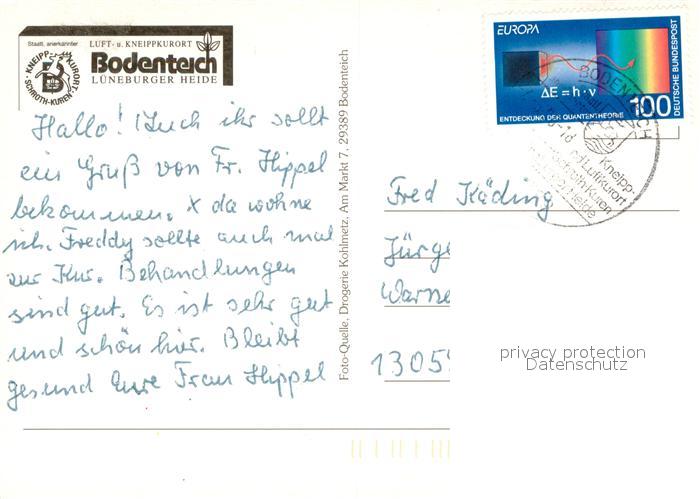 Staatl. anerkannter
LUFT- u. KNEIPPKURORT
Bodenteich
LÜNEBURGER HEIDE
KNEIPP-KURORT
SCHROTH-KUREN
B
Hallo! Auch ihr sollt
ein Gruß von Fr. Hippel
bekommen. X da wohne
ich. Freddy sollte auch mal
zur Kur. Behandlungen
sind gut. Es ist sehr gut
und schön hier. Bleibt
gesund Eure Frau Hippel
Foto-Quelle, Drogerie Kohlmetz, Am Markt 7, 29389 Bodenteich
EUROPA
ΔE = h · ν
ENTDECKUNG DER QUANTENTHEORIE
100
DEUTSCHE BUNDESPOST
BODENTEICH
Kneipp-
Luftkurort
Schroth-Kuren
Heide
Fred Käding
Jürge
Warne
1305
privacy protection
Datenschutz